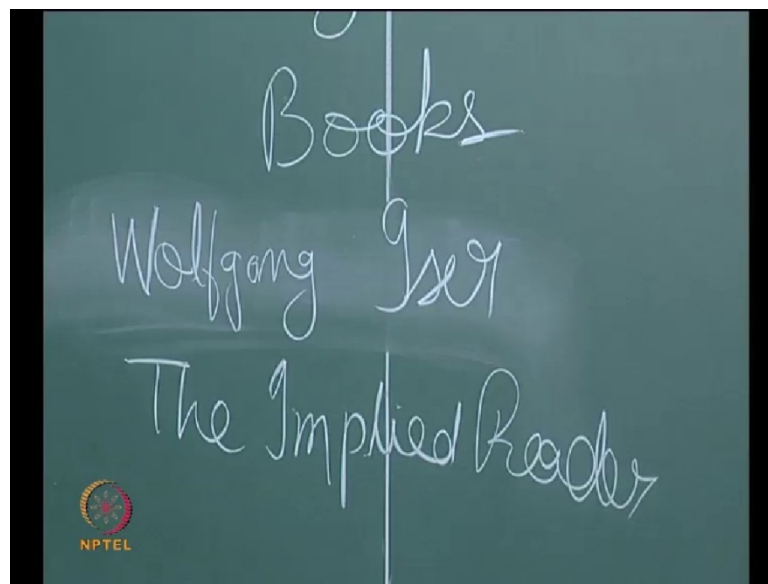 Books
Wolfgang Iser
The Implied Reader
NPTEL